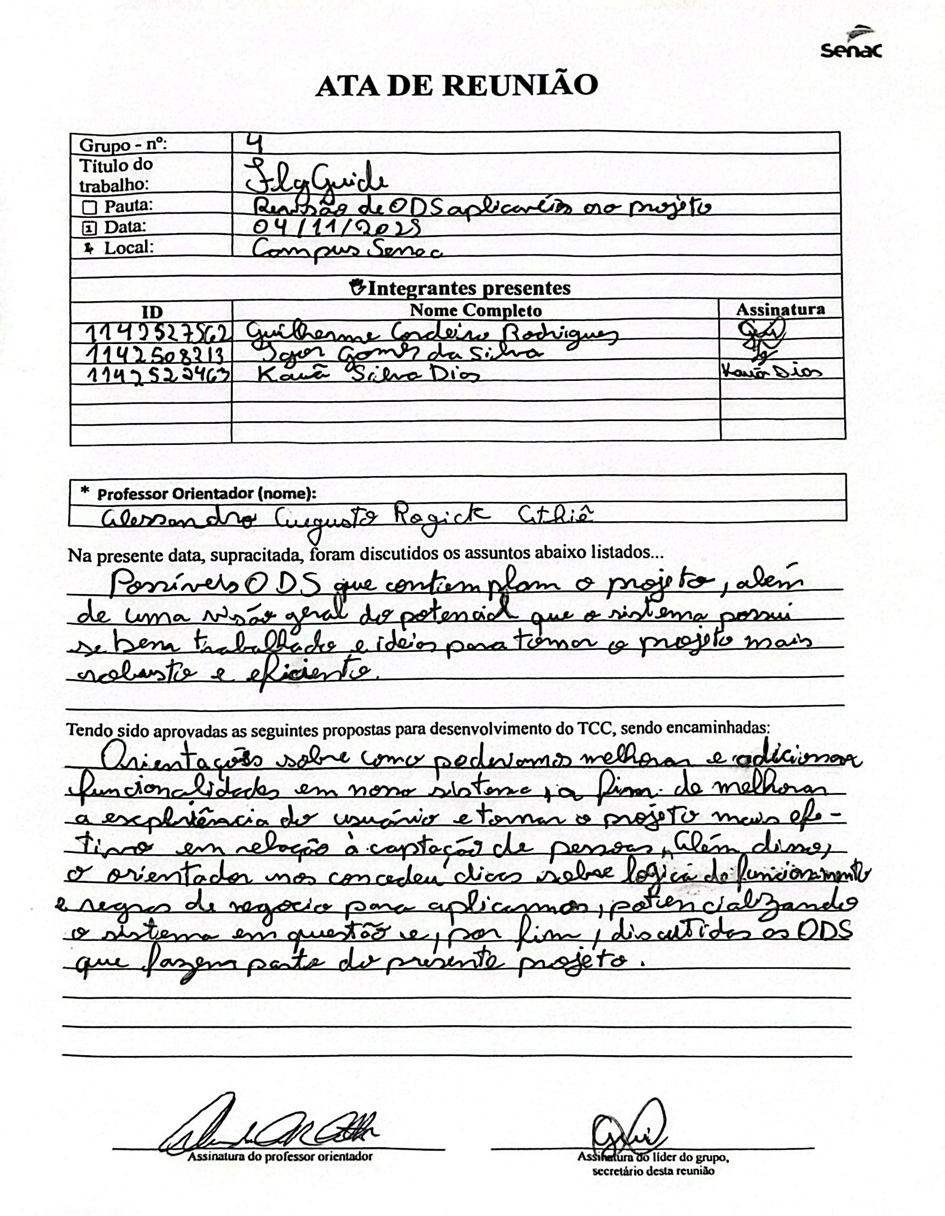 Senac
ATA DE REUNIÃO
Grupo - nº: 4
Título do trabalho: FlyGuide
Pauta: Revisão de ODS aplicavéis ao projeto
Data: 04/11/2025
Local: Campus Senac
Integrantes presentes
ID Nome Completo Assinatura
1142527562 Guilherme Cordeiro Rodrigues Gui
1142508213 Igor Gomes da Silva Ig
1142522463 Kauã Silva Dias Kauã Dias
* Professor Orientador (nome):
Alessandro Augusto Rogick Athiê
Na presente data, supracitada, foram discutidos os assuntos abaixo listados...
Possíveis ODS que contemplam o projeto, além
de uma visão geral do potencial que o sistema possui
se bem trabalhado e ideias para tornar o projeto mais
robusto e eficiente.
Tendo sido aprovadas as seguintes propostas para desenvolvimento do TCC, sendo encaminhadas:
Orientações sobre como poderiamos melhorar e adicionar
funcionalidades em nosso sistema, a fim de melhorar
a expêriência do usuário e tornar o projeto mais efe-
tivo em relação à captação de pessoas. Além disso,
o orientador nos concedeu dicas sobre logica de funcionamento
e regras de negócio para aplicarmos, potencializando
o sistema em questão e, por fim, discutidos os ODS
que fazem parte do presente projeto.
Assinatura do professor orientador
Assinatura do líder do grupo,
secretário desta reunião